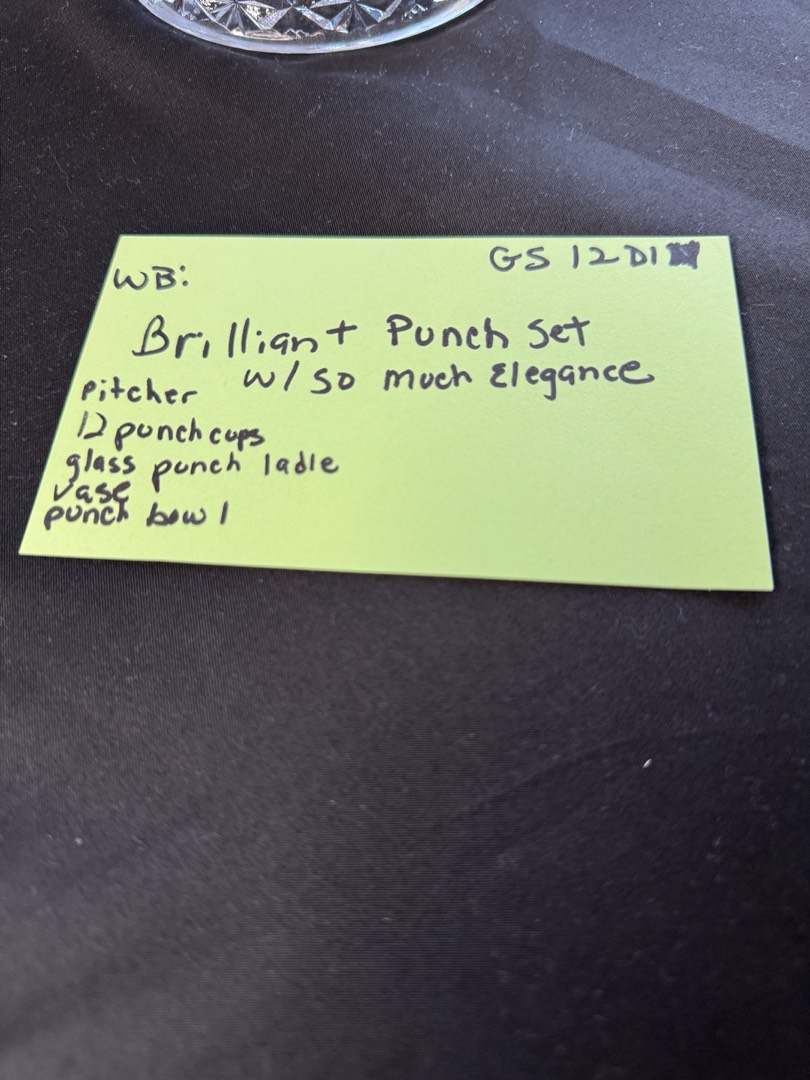 GS 12D1
WB:
Brilliant Punch Set
w/ so much Elegance
Pitcher
12 punch cups
glass punch ladle
vase
punch bowl